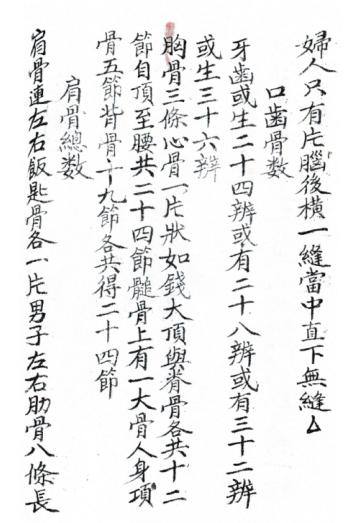 婦人只有片腦後横一縫當中直下無縫△
口齒骨數
牙齒或生二十四辨或有二十八辨或有三十二辨
或生三十六辨
胸骨三條心骨一片狀如錢大頂與脊骨各共十二
節自頂至腰共二十四節髓骨上有一大骨人身項
骨五節背骨十九節各共得二十四節
肩骨總数
肩骨連左右飯匙骨各一片男子左右肋骨八條長